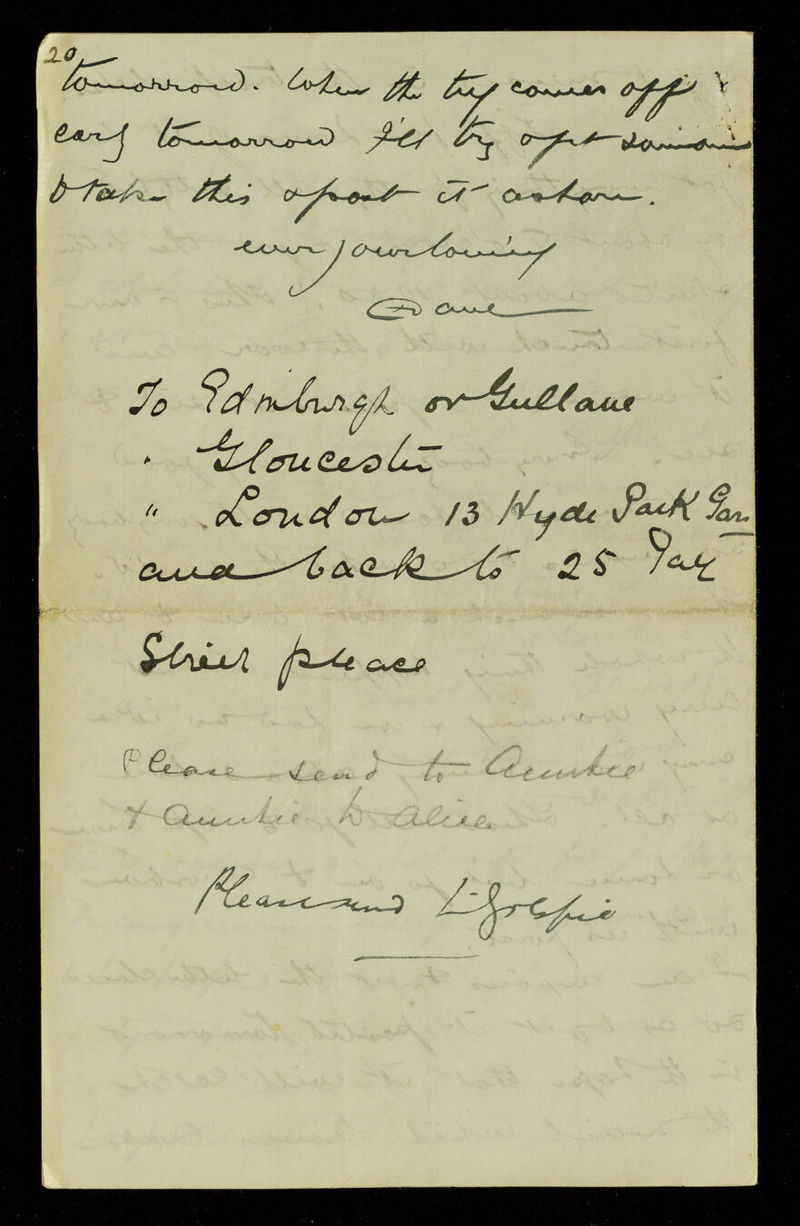 20
tomorrow. When the tug comes off
early tomorrow I'll try & get someone
to take this & post it ashore.
ever your loving
Dave
To Edinburgh or Gullane
" Gloucester
" London 13 Hyde Park Gar
and back to 25
Street please
Please send to Auntie
& Auntie to Alice
Please send to